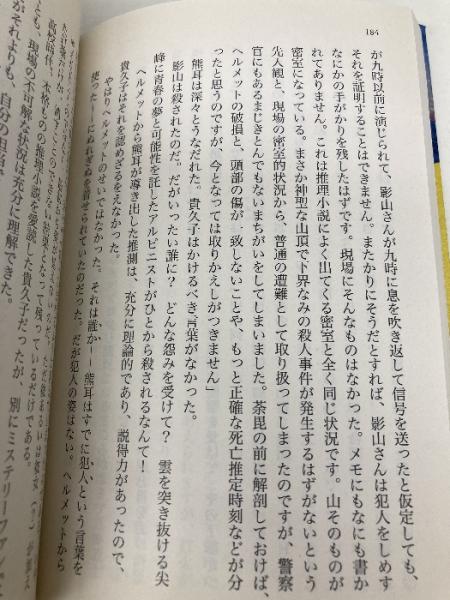 184
が九時以前に演じられて、影山さんが九時に息を吹き返して信号を送ったと仮定しても、
それを証明することはできません。またかりにそうだとすれば、影山さんは犯人をしめす
なにかの手がかりを残したはずです。現場にそんなものはなかった。メモにもなにも書か
れてありません。これは推理小説によく出てくる密室と全く同じ状況です。山そのものが
密室になっている。まさか神聖な山頂で下界なみの殺人事件が発生するはずがないという
先入観と、現場の密室的状況から、普通の遭難として取り扱ってしまったのですが、警察
官にもあるまじきとんでもないまちがいをしてしまいました。荼毘の前に解剖しておけば、
ヘルメットの破損と、頭部の傷が一致しないことや、もっと正確な死亡推定時刻などが分
ったと思うのですが、今となっては取りかえしがつきません」
熊耳は深々とうなだれた。貴久子はかけるべき言葉がなかった。
影山は殺されたのだ。だがいったい誰に？　どんな怨みを受けて？　雲を突き抜ける尖
峰に青春の夢と可能性を託したアルピニストがひとから殺されるなんて！
ヘルメットから熊耳が導き出した推測は、充分に理論的であり、説得力があったので、
貴久子はそれを認めざるをえなかった。
やはりヘルメットのせいではなかった。それは誰か――熊耳はすでに犯人という言葉を
使った――にぬれぎぬを着せられていたのだった。だが犯人の姿はない。ヘルメットから
高校時代、本格ものの推理小説を愛読した貴久子だったが、別にミステリーファンで
とも、現場の不可解な状況は充分に理解できた。
がそれよりも、自分の担当